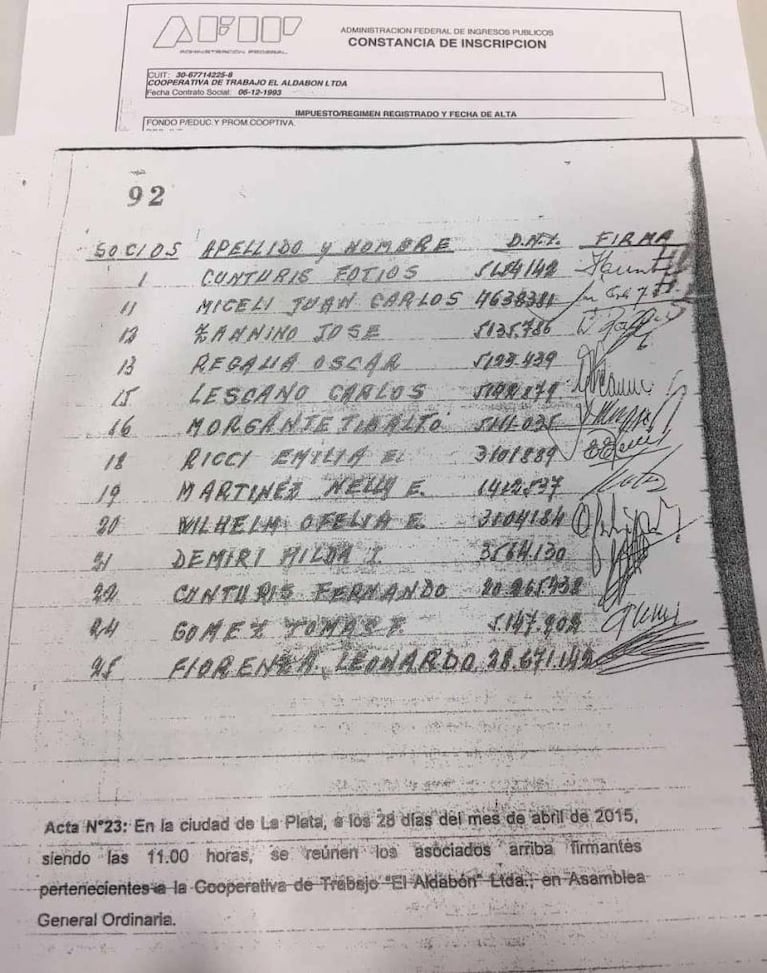 AFIP
ADMINISTRACIÓN FEDERAL
ADMINISTRACION FEDERAL DE INGRESOS PUBLICOS
CONSTANCIA DE INSCRIPCION
CUIT: 30-67714225-8
COOPERATIVA DE TRABAJO EL ALDABON LTDA
Fecha Contrato Social: 06-12-1993
IMPUESTO/REGIMEN REGISTRADO Y FECHA DE ALTA
FONDO P/EDUC.Y PROM.COOPTIVA.
92
SOCIOS APELLIDO y NOMBRE D.N.I. FIRMA
1 CUNTURIS FOTIOS 5184142
11 MICELI JUAN CARLOS 4638381
12 ZANNINO JOSE 5135.786
13 REGALIA OSCAR 5193.439
15 LESCANO CARLOS
16 MORGANTE TIBALTO
18 RICCI EMILIA E. 3101889
19 MARTINEZ NELLY E. 1412537
20 WILHELM OFELIA E. 3104184
21 DEMIRI HILDA I. 3564.130
22 CUNTURIS FERNANDO 20.265.438
24 GOMEZ TOMAS F. 5.147.902
25 FIORENZA, LEONARDO 28.671.142
Acta N°23: En la ciudad de La Plata, a los 28 días del mes de abril de 2015,
siendo las 11.00 horas, se reúnen los asociados arriba firmantes
pertenecientes a la Cooperativa de Trabajo "El Aldabón" Ltda., en Asamblea
General Ordinaria.